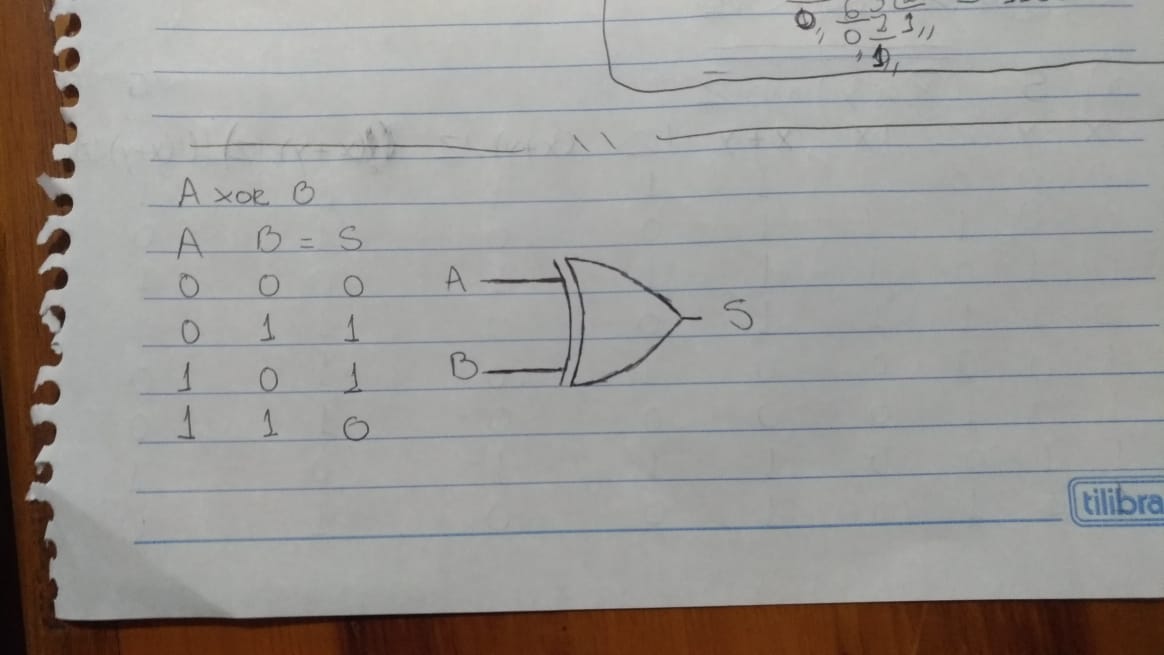 A XOR B
A B = S
0 0 0
0 1 1
1 0 1
1 1 0
A
B
S
tilibra